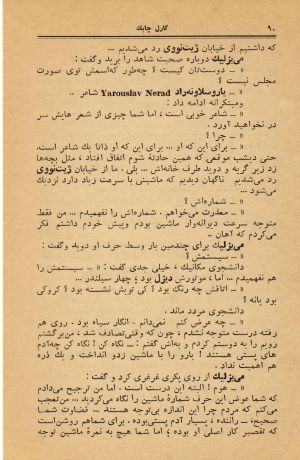 ۹۰ کارل چاپک
که داشتیم از خیابان ژیت‌نووی رد می‌شدیم ...
می‌یزلیک دوباره صحبت شاهد را برید وگفت:
« ـ دوست‌تان کیست ؟ چه‌طور که‌اسمش توی صورت
مجلس نیست ؟
« ـ یاروسلاونه‌راد Yarouslav Nerad شاعر ..
ومبتکرانه ادامه داد :
« ـ شاعر خوبی است ، اما شما چیزی از شعر هایش سر
در نخواهید آورد .
« ـ چرا ؟
« ـ برای این که او ... برای این که او ذاتا یك شاعر است.
حتی دیشب موقعی که همین حادثهٔ شوم اتفاق افتاد ، مثل بچه‌ها
زد زیر گریه و دوید طرف خانه‌اش ... بلی . ما از خیابان ژیت‌نووی
رد می‌شدیم ناگهان دیدیم که ماشینی با سرعت زیاد دارد نزدیك
می‌شود ...
« ـ شماره‌اش ؟
« ـ معذرت می‌خواهم . شماره‌اش را نفهمیدم ... من فقط
متوجه سرعت دیوانه‌وار ماشین بودم وپیش خودم داشتم فکر
می‌کردم که آهان ـ
می‌یزلیك برای چندمین بار وسط حرف او دوید وگفت:
« ـ سیستمش ؟
دانشجوی مکانیك ، خیلی جدی گفت : « ـ سیستمش را
هم نفهمیدم ... اما ، موتورش دیزل بود ؛ چهار سیلندر ...
« ـ اتاقش چه رنگ بود ؟ کی تویش نشسته بود ؟ کروکی
بود یانه ؟
دانشجوی مردد ماند .
« ـ چه عرض کنم نمی‌دانم . انگار سیاه بود . روی هم
رفته درست متوجه نشدم ، چون که وقتی‌تصادف شد ، من‌برگشتم
رویم را به دوستم کردم و به‌اش گفتم : ـ نگاه کن ! نگاه کن چه‌آدم
های پستی هستند ! یارو را با ماشین زدو انداخت و یك ذره
هم اهمیت نداد .
می‌یزلیك از روی یکری غرغری کرد و گفت :
« ـ هوم ! البته این درست است . اما من ترجیح می‌دادم
که شما عوض این حرف شمارهٔ ماشین را نگاه می‌کردید... من‌تعجب
می‌کنم که مردم چرا این اندازه بی‌توجه هستند ... قضاوت شما
صحیح،ـ راننده ، بسیار آدم پستی‌بوده . برای شماهم روشن‌است
که تقصیر کار اصلی او بوده ؛ اما شما هیچ به نمرهٔ ماشین توجه